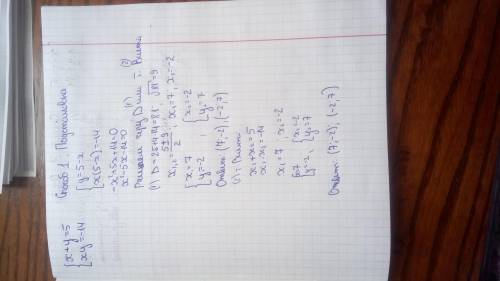 {x+y=5
{xy=-14
Способ 1. Подстановка
{y=5-x
{x(5-x)=-14
-x²+5x+14=0
x²-5x-14=0
Решаем через D или т. Виета
(1) (2)
(1) D=25+4·14=81; √81=9
x₁,₂=(5±9)/2; x₁=7, x₂=-2
{x₁=7
{y=-2
; {x₂=-2
{y=7
Ответ: (7;-2); (-2;7)
(2) т. Виета
x₁+x₂=5
x₁·x₂=-14
x₁=7, x₂=-2
{x=7
{y=-2
; {x₂=-2
{y₂=7
Ответ: (7;-2); (-2;7)